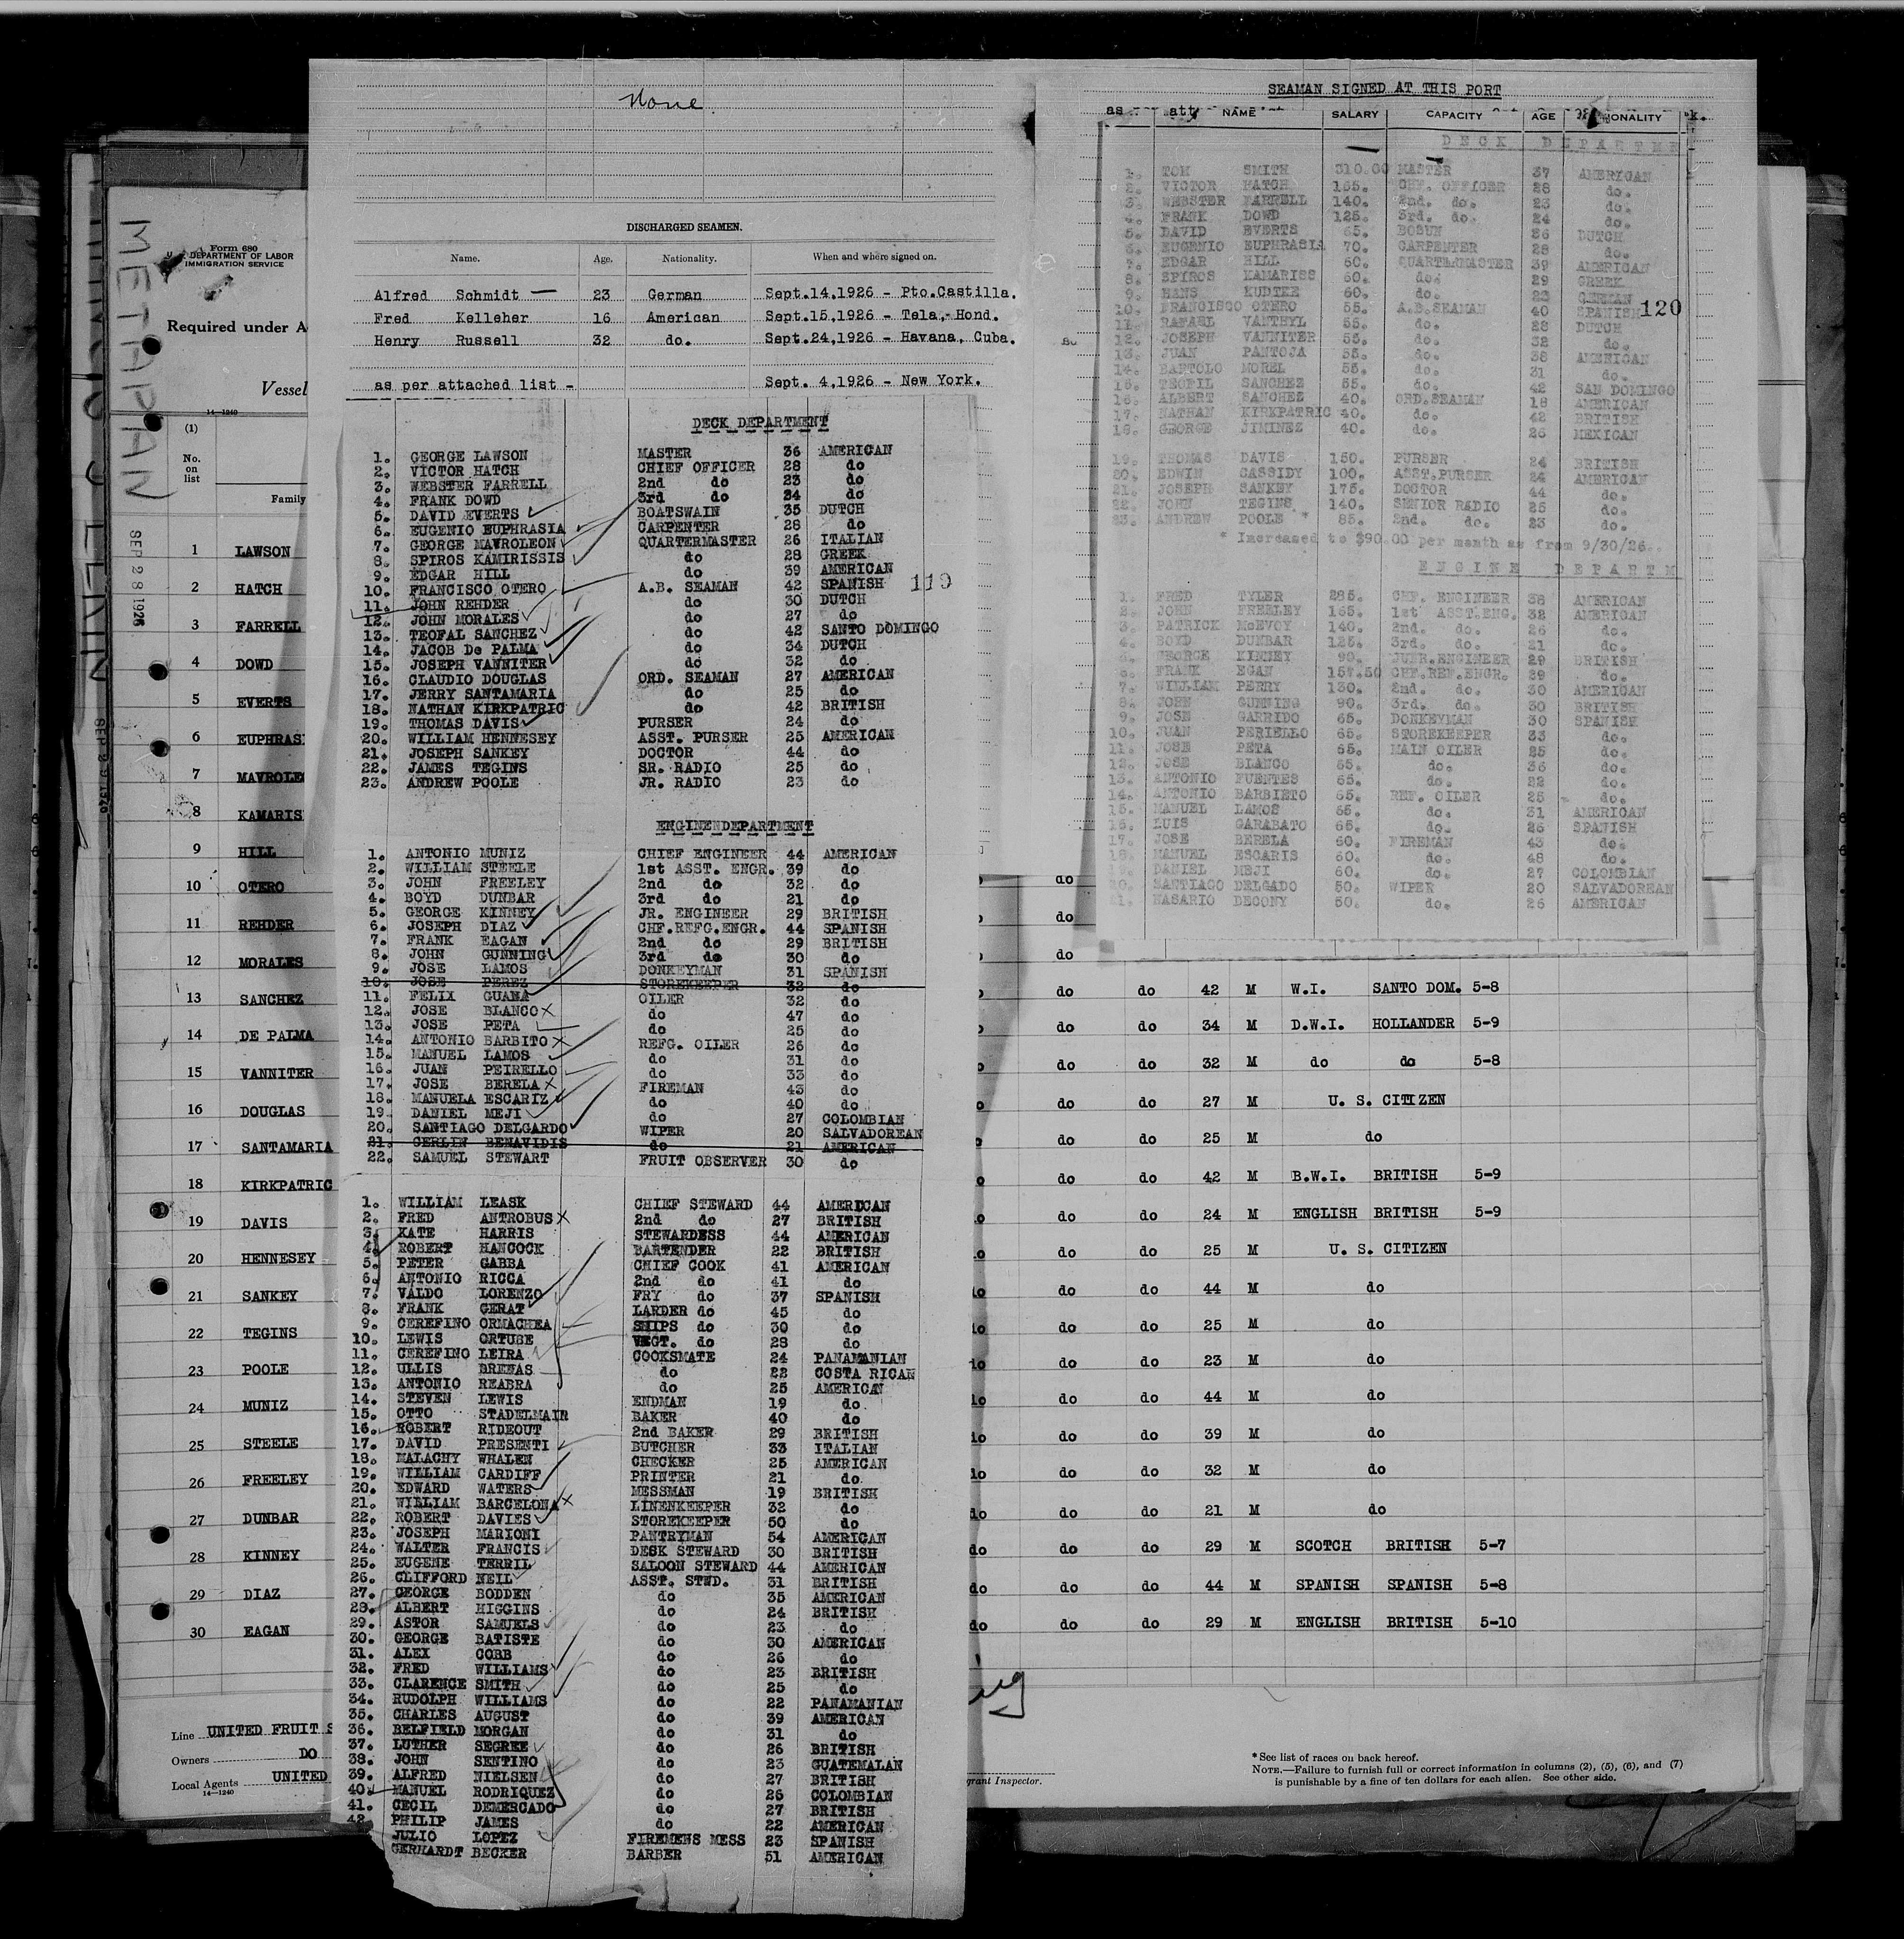 None
DISCHARGED SEAMEN.
Name. Age. Nationality. When and where signed on.
Alfred Schmidt — 23 German Sept.14,1926 - Pto.Castilla.
Fred Kelleher 16 American Sept.15,1926 - Tela,- Hond.
Henry Russell 32 do. Sept.24,1926 - Havana, Cuba.
as per attached list - Sept. 4,1926 - New York.
DECK DEPARTMENT
1. GEORGE LAWSON MASTER 36 AMERICAN
2. VICTOR HATCH CHIEF OFFICER 28 do
3. WEBSTER FARRELL 2nd do 23 do
4. FRANK DOWD 3rd do 24 do
5. DAVID EVERTS BOATSWAIN 35 DUTCH
6. EUGENIO EUPHRASIA CARPENTER 28 do
7. GEORGE MAVROLEON QUARTERMASTER 26 ITALIAN
8. SPIROS KAMIRISSIS do 28 GREEK
9. EDGAR HILL do 39 AMERICAN
10. FRANCISCO OTERO A.B. SEAMAN 42 SPANISH 119
11. JOHN REHDER do 30 DUTCH
12. JOHN MORALES do 27 do
13. TEOFAL SANCHEZ do 42 SANTO DOMINGO
14. JACOB De PALMA do 34 DUTCH
15. JOSEPH VANNITER do 32 do
16. CLAUDIO DOUGLAS ORD. SEAMAN 27 AMERICAN
17. JERRY SANTAMARIA do 25 do
18. NATHAN KIRKPATRIC do 42 BRITISH
19. THOMAS DAVIS PURSER 24 do
20. WILLIAM HENNESEY ASST. PURSER 25 AMERICAN
21. JOSEPH SANKEY DOCTOR 44 do
22. JAMES TEGINS SR. RADIO 25 do
23. ANDREW POOLE JR. RADIO 23 do
ENGINENDEPARTMENT
1. ANTONIO MUNIZ CHIEF ENGINEER 44 AMERICAN
2. WILLIAM STEELE 1st ASST. ENGR. 39 do
3. JOHN FREELEY 2nd do 32 do
4. BOYD DUNBAR 3rd do 21 do
5. GEORGE KINNEY JR. ENGINEER 29 BRITISH
6. JOSEPH DIAZ CHF.REFG.ENGR. 44 SPANISH
7. FRANK EAGAN 2nd do 29 BRITISH
8. JOHN GUNNING 3rd do 30 do
9. JOSE LAMOS DONKEYMAN 31 SPANISH
10. JOSE PEREZ STOREKEEPER 32 do
11. FELIX GUANA OILER 32 do
12. JOSE BLANCO do 47 do
13. JOSE PETA do 25 do
14. ANTONIO BARBITO REFG. OILER 26 do
15. MANUEL LAMOS do 31 do
16. JUAN PEIRELLO do 33 do
17. JOSE BERELA FIREMAN 43 do
18. MANUELA ESCARIZ do 40 do
19. DANIEL MEJI do 27 COLOMBIAN
20. SANTIAGO DELGARDO WIPER 20 SALVADOREAN
21. CERLIN BENAVIDIS do 21 AMERICAN
22. SAMUEL STEWART FRUIT OBSERVER 30 do
1. WILLIAM LEASK CHIEF STEWARD 44 AMERICAN
2. FRED ANTROBUS 2nd do 27 BRITISH
3. KATE HARRIS STEWARDESS 44 AMERICAN
4. ROBERT HANCOCK BARTENDER 22 BRITISH
5. PETER GABBA CHIEF COOK 41 AMERICAN
6. ANTONIO RICCA 2nd do 41 do
7. VALDO LORENZO FRY do 37 SPANISH
8. FRANK GERAT LARDER do 45 do
9. CEREFINO ORMACHEA SHIPS do 30 do
10. LEWIS ORTUBE VEGT. do 28 do
11. CEREFINO LEIRA COOKSMATE 24 PANAMANIAN
12. ULLIS BRENAS do 22 COSTA RICAN
13. ANTONIO REABRA do 25 AMERICAN
14. STEVEN LEWIS ENDMAN 19 do
15. OTTO STADELMAIR BAKER 40 do
16. ROBERT RIDEOUT 2nd BAKER 29 BRITISH
17. DAVID PRESENTI BUTCHER 33 ITALIAN
18. MALACHY WHALEN CHECKER 25 AMERICAN
19. WILLIAM CARDIFF PRINTER 21 do
20. EDWARD WATERS MESSMAN 19 BRITISH
21. WILLIAM BARCELONA LINENKEEPER 32 do
22. ROBERT DAVIES STOREKEEPER 50 do
23. JOSEPH MARIONI PANTRYMAN 54 AMERICAN
24. WALTER FRANCIS DESK STEWARD 30 BRITISH
25. EUGENE TERRIL SALOON STEWARD 44 AMERICAN
26. CLIFFORD NEIL ASST. STWD. 31 BRITISH
27. GEORGE BODDEN do 35 AMERICAN
28. ALBERT HIGGINS do 24 BRITISH
29. ASTOR SAMUELS do 23 do
30. GEORGE BATISTE do 30 AMERICAN
31. ALEX COBB do 26 do
32. FRED WILLIAMS do 23 BRITISH
33. CLARENCE SMITH do 25 do
34. RUDOLPH WILLIAMS do 22 PANAMANIAN
35. CHARLES AUGUST do 39 AMERICAN
36. BELFIELD MORGAN do 31 do
37. LUTHER SEGREE do 26 BRITISH
38. JOHN SENTINO do 23 GUATEMALAN
39. ALFRED NIELSEN do 27 BRITISH
40. MANUEL RODRIQUEZ do 26 COLOMBIAN
41. CECIL DEMERCADO do 27 BRITISH
42. PHILIP JAMES do 22 AMERICAN
JULIO LOPEZ FIREMENS MESS 23 SPANISH
GERHARDT BECKER BARBER 51 AMERICAN
SEAMAN SIGNED AT THIS PORT
as
NAME SALARY CAPACITY AGE
DECK DEPARTME
1. TOM SMITH 310.00 MASTER 37 AMERICAN
2. VICTOR HATCH 165. CHF. OFFICER 28 do.
3. WEBSTER FARRELL 140. 2nd. do. 23 do.
4. FRANK DOWD 125. 3rd. do. 24 do.
5. DAVID EVERTS 65. BOSUN 36 DUTCH
6. EUGENIO EUPHRASIA 70. CARPENTER 28 do.
7. EDGAR HILL 60. QUARTERMASTER 39 AMERICAN
8. SPIROS KAMARISS 60. do. 29 GREEK
9. HANS KUDTKE 60. do. 23 GERMAN
10. FRANCISCO OTERO 55. A.B.SEAMAN 40 SPANISH 120
11. RAFAEL VANTHYL 55. do. 28 DUTCH
12. JOSEPH VANNITER 55. do. 32 do.
13. JUAN PANTOJA 55. do. 38 AMERICAN
14. BARTOLO MOREL 55. do. 31 do.
15. TEOFIL SANCHEZ 55. do. 42 SAN DOMINGO
16. ALBERT SANCHEZ 40. ORD.SEAMAN 18 AMERICAN
17. NATHAN KIRKPATRIC 40. do. 42 BRITISH
18. GEORGE JIMINEZ 40. do. 26 MEXICAN
19. THOMAS DAVIS 150. PURSER 24 BRITISH
20. EDWIN CASSIDY 100. ASST.PURSER 24 AMERICAN
21. JOSEPH SANKEY 175. DOCTOR 44 do.
22. JOHN TEGINS 140. SENIOR RADIO 25 do.
23. ANDREW POOLE * 85. 2nd. do. 23 do.
* Increased to $90.00 per month as from 9/30/26.
ENGINE DEPARTM
1. FRED TYLER 285. CHF. ENGINEER 38 AMERICAN
2. JOHN FREELEY 165. 1st ASST.ENG. 32 AMERICAN
3. PATRICK McEVOY 140. 2nd. do. 26 do.
4. BOYD DUNBAR 125. 3rd. do. 21 do.
5. GEORGE KINNEY 90. JUNR.ENGINEER 29 BRITISH
6. FRANK EGAN 157.50 CHF.REF.ENGR. 29 do.
7. WILLIAM PERRY 130. 2nd. do. 30 AMERICAN
8. JOHN GUNNING 90. 3rd. do. 30 BRITISH
9. JOSE GARRIDO 65. DONKEYMAN 30 SPANISH
10. JUAN PERIELLO 65. STOREKEEPER 33 do.
11. JOSE PETA 65. MAIN OILER 25 do.
12. JOSE BLANCO 65. do. 36 do.
13. ANTONIO FUENTES 65. do. 22 do.
14. ANTONIO BARBIETO 65. REF. OILER 25 do.
15. MANUEL LAMOS 65. do. 31 AMERICAN
16. LUIS GARABATO 65. do. 26 SPANISH
17. JOSE BERELA 60. FIREMAN 43 do.
18. MANUEL ESCARIS 60. do. 48 do.
19. DANIEL MEJI 60. do. 27 COLOMBIAN
20. SANTIAGO DELGADO 50. WIPER 20 SALVADOREAN
21. HASARIO DECONY 50. do. 26 AMERICAN
METAPAN
SEP 28 1926
Form 680
U. S. DEPARTMENT OF LABOR
IMMIGRATION SERVICE
Required under A
Vessel
14—1240
(1)
No. on list
Family
1 LAWSON
2 HATCH
3 FARRELL
4 DOWD
5 EVERTS
6 EUPHRAS
7 MAVROLE
8 KAMARIS
9 HILL
10 OTERO do
11 REHDER do
12 MORALES do
13 SANCHEZ do do 42 M W.I. SANTO DOM. 5-8
14 DE PALMA do do 34 M D.W.I. HOLLANDER 5-9
15 VANNITER do do 32 M do do 5-8
16 DOUGLAS do do 27 M U. S. CITIZEN
17 SANTAMARIA do do 25 M do
18 KIRKPATRIC do do 42 M B.W.I. BRITISH 5-9
19 DAVIS do do 24 M ENGLISH BRITISH 5-9
20 HENNESEY do do 25 M U. S. CITIZEN
21 SANKEY do do 44 M do
22 TEGINS do do 25 M do
23 POOLE do do 23 M do
24 MUNIZ do do 44 M do
25 STEELE do do 39 M do
26 FREELEY do do 32 M do
27 DUNBAR do do 21 M do
28 KINNEY do do do 29 M SCOTCH BRITISH 5-7
29 DIAZ do do do 44 M SPANISH SPANISH 5-8
30 EAGAN do do do 29 M ENGLISH BRITISH 5-10
Line UNITED FRUIT S
Owners DO
Local Agents UNITED
14—1240
grant Inspector.
* See list of races on back hereof.
NOTE.—Failure to furnish full or correct information in columns (2), (5), (6), and (7)
is punishable by a fine of ten dollars for each alien. See other side.